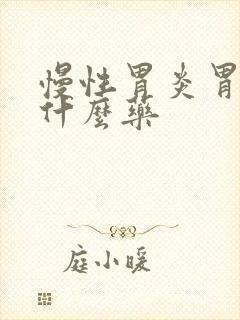 慢性胃炎胃
什麼藥
庭小暖